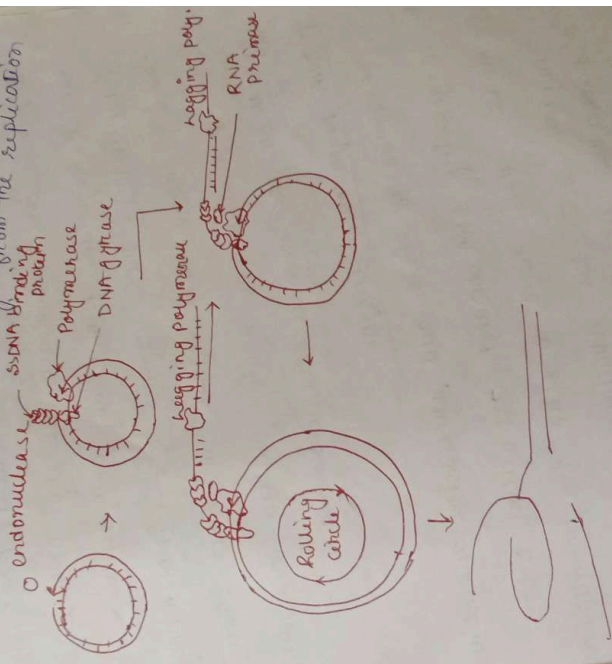 from the replication
endonuclease
SSDNA binding
protein
Polymerase
DNA gyrase
Lagging poly.
RNA
primase
Lagging polymerase
Rolling
circle